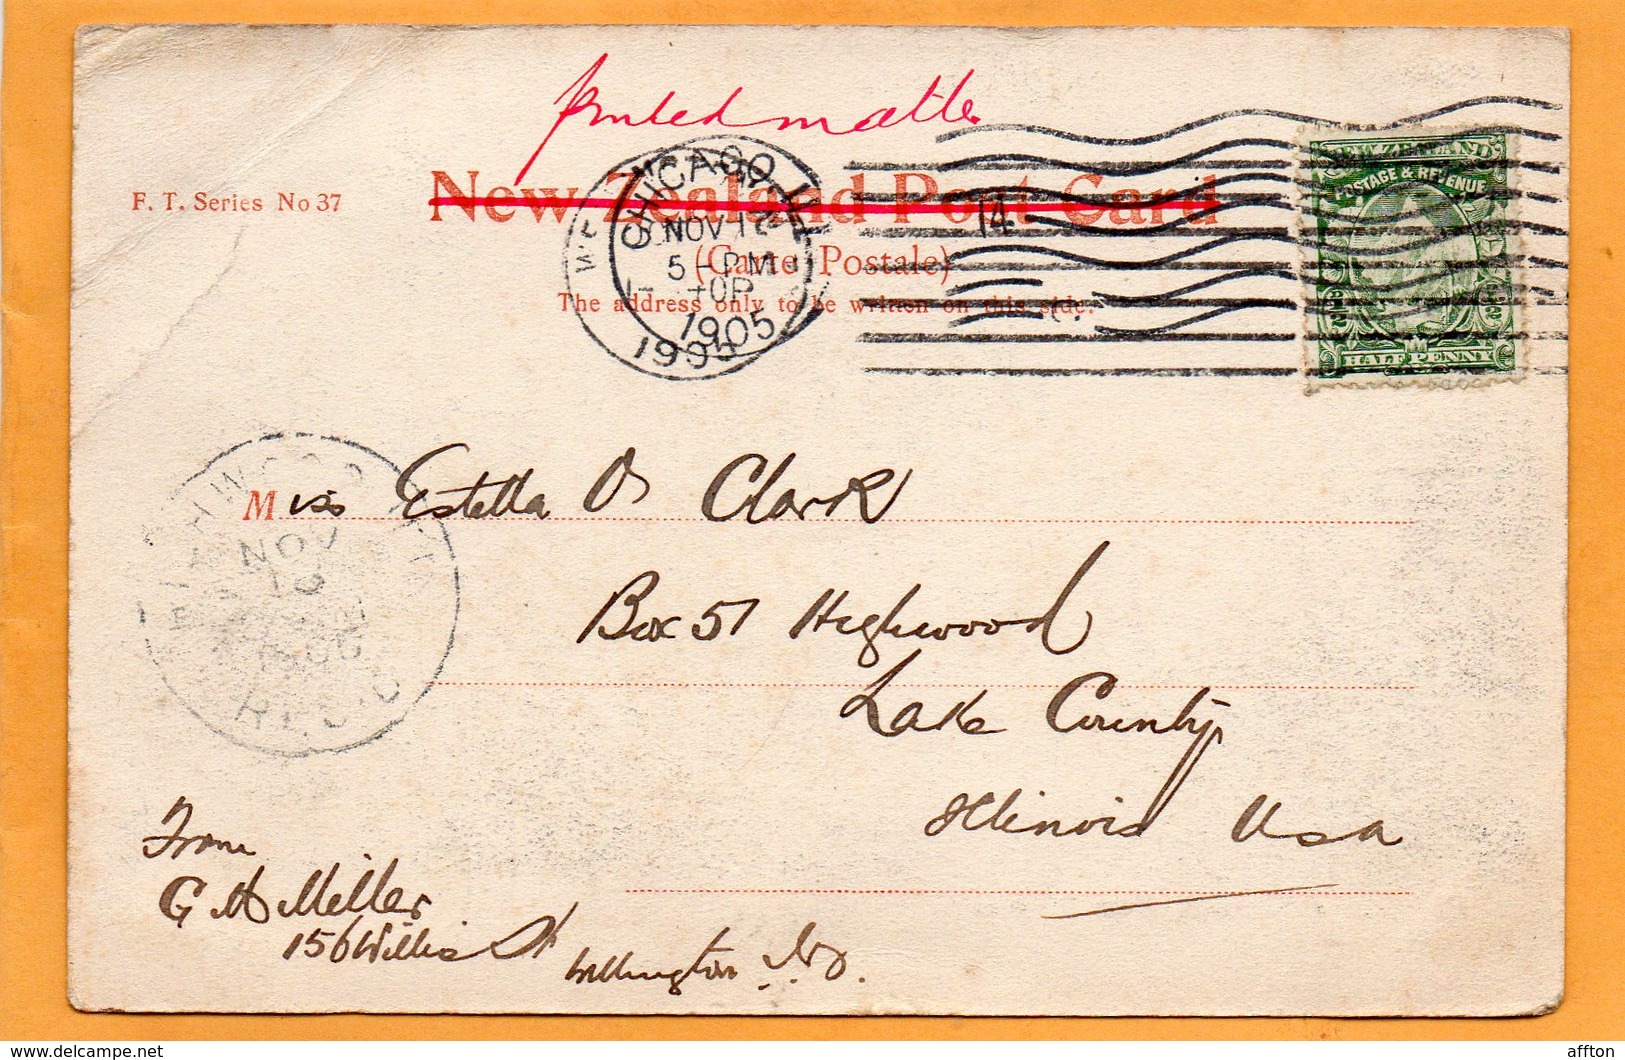 Printed matter
F. T. Series No 37
New Zealand Post Card
(Carte Postale)
The address only to be written on this side.
CHICAGO, ILL.
NOV 1
5-PM
1905
1905
14
NEW ZEALAND
POSTAGE & REVENUE
HALF PENNY
Miss Estella O Clark
Box 57 Highwood
Lake County,
Illinois Usa
NOV
1905
REC'D
From
G A Miller
156 Willis St
Wellington N.Z.
delcampe.net
affton